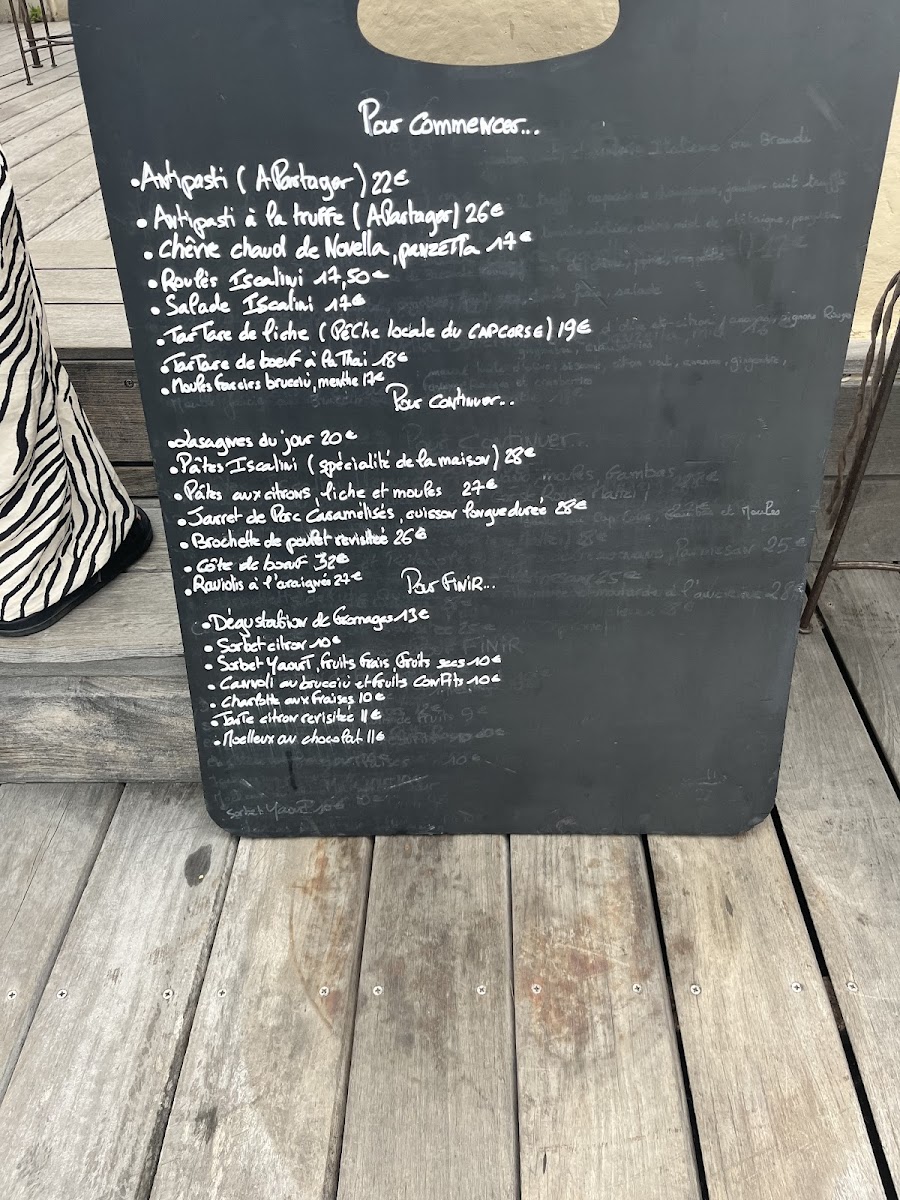 Pour Commencer...
• Antipasti ( A Partager ) 22€
• Antipasti à la truffe ( A Partager ) 26€
• Chèvre chaud de Novella, panzetta 17€
• Roulés Iscalini 17,50€
• Salade Iscalini 17€
• Tartare de liche ( Pêche locale du CAP CORSE ) 19€
• Tartare de bœuf à la Thai 18€
• Moules farcies brucciu, menthe 17€
Pour Continuer...
• Lasagnes du jour 20€
• Pâtes Iscalini ( spécialité de la maison ) 28€
• Pâtes aux citrons, liche et moules 27€
• Jarret de Porc Caramélisés, cuisson longue durée 28€
• Brochette de poulet revisitée 26€
• Côte de bœuf 32€
• Raviolis à l'araignée 27€
Pour FINIR...
• Dégustation de fromages 13€
• Sorbet citron 10€
• Sorbet Yaourt, fruits frais, fruits secs 10€
• Cannoli au brucciu et fruits confits 10€
• Charlotte aux fraises 10€
• Tarte citron revisitée 11€
• Moelleux au chocolat 11€
Sorbet Yaourt 10€